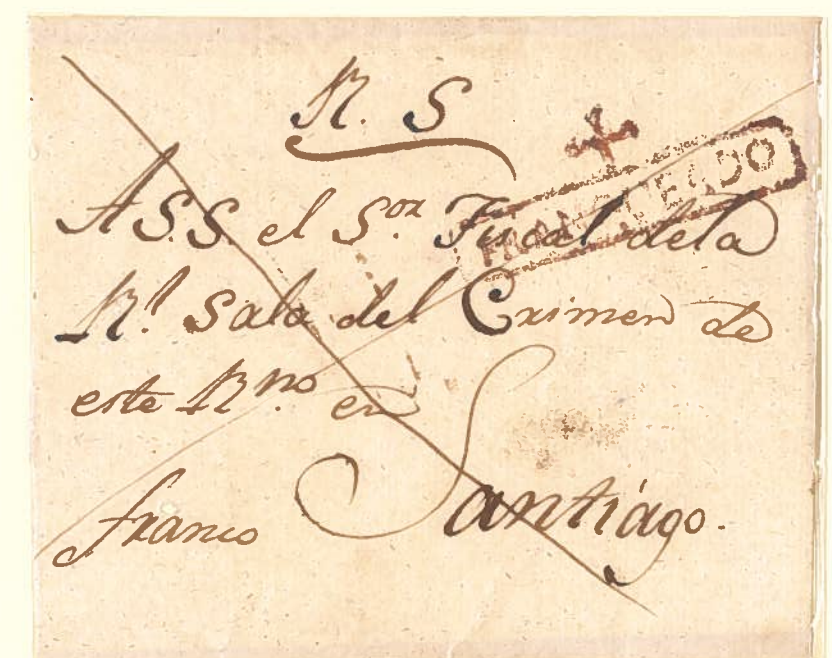 R. S
FRANQUEADO
A S.S. el S.or Fiscal dela
Rl. Sala del Crimen de
este Rno. en
Santiágo.
franco